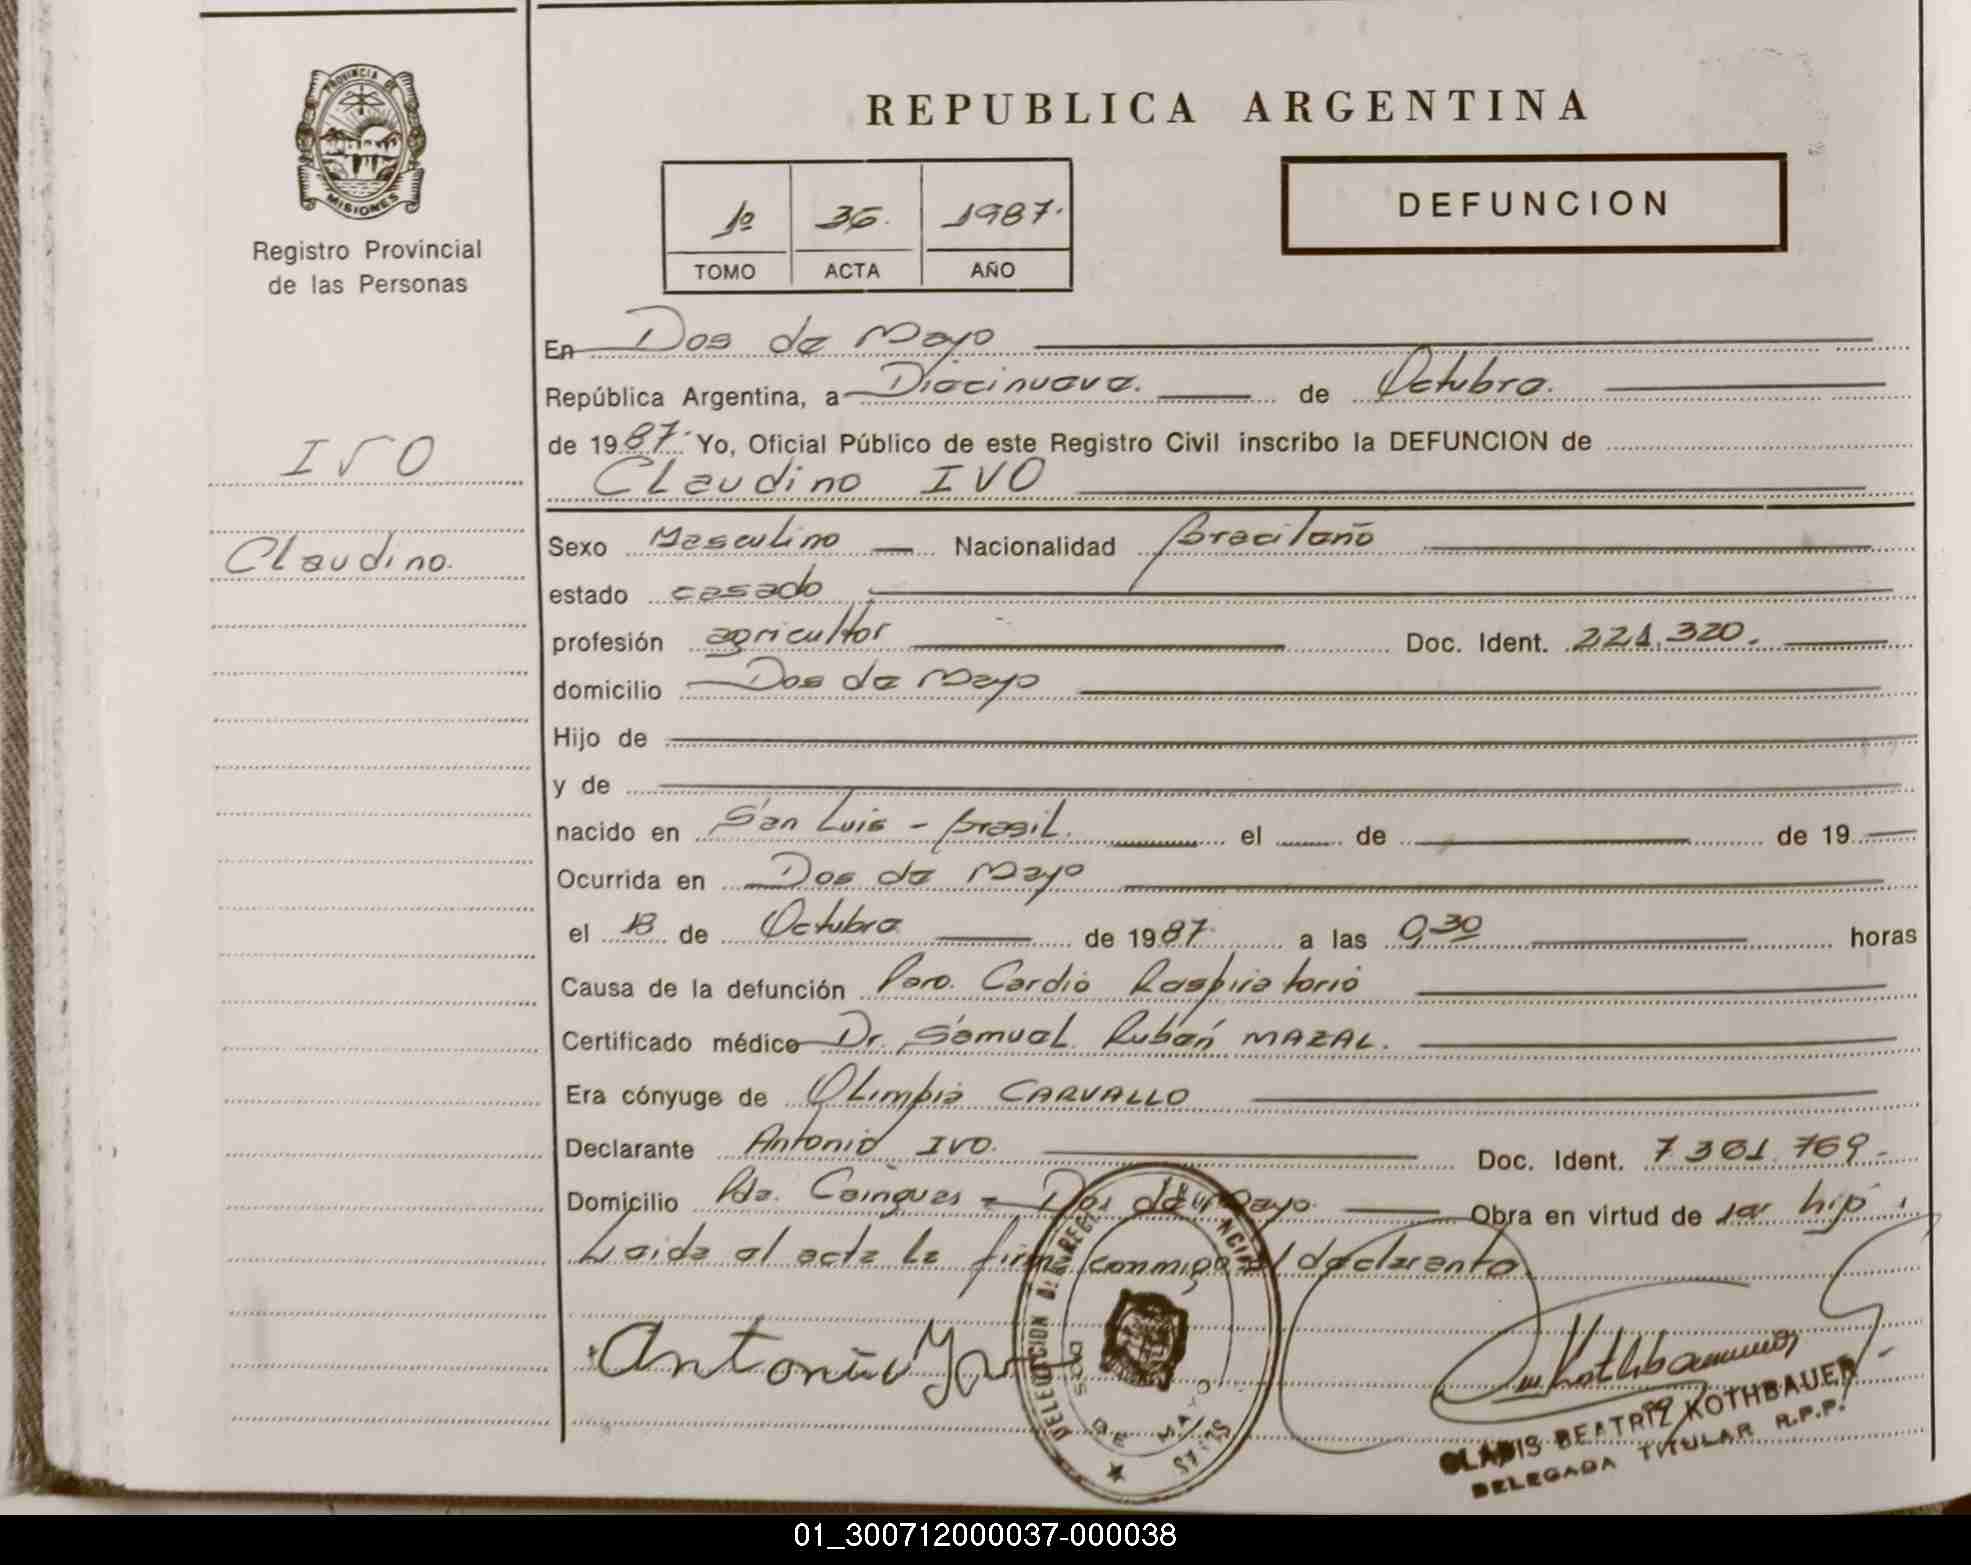 PROVINCIA DE
MISIONES
Registro Provincial
de las Personas
IVO
Claudino.
REPUBLICA ARGENTINA
1º 36. 1987.
TOMO ACTA AÑO
DEFUNCION
En Dos de Mayo
República Argentina, a Diecinueve. de Octubre.
de 1987. Yo, Oficial Público de este Registro Civil inscribo la DEFUNCION de
Claudino IVO
Sexo Masculino Nacionalidad Bracileño
estado casado
profesión agricultor Doc. Ident. 221.320.
domicilio Dos de Mayo
Hijo de
y de
nacido en San Luis - Brasil. el de de 19
Ocurrida en Dos de Mayo
el 18 de Octubre de 1987. a las 0,30 horas
Causa de la defunción Paro. Cardio Respiratorio
Certificado médico Dr. Samuel Rubén MAZAL.
Era cónyuge de Olimpia CARVALLO
Declarante Antonio IVO. Doc. Ident. 7 301 769.
Domicilio Pda. Cainguas - Dos de Mayo. Obra en virtud de ser hijo.
Leida el acta la firma conmigo el declarante.
Antonio Ivo
DELEGACION
DOS DE MAYO
GLADIS BEATRIZ KOTHBAUER
DELEGADA TITULAR R.P.P.
01_300712000037-000038